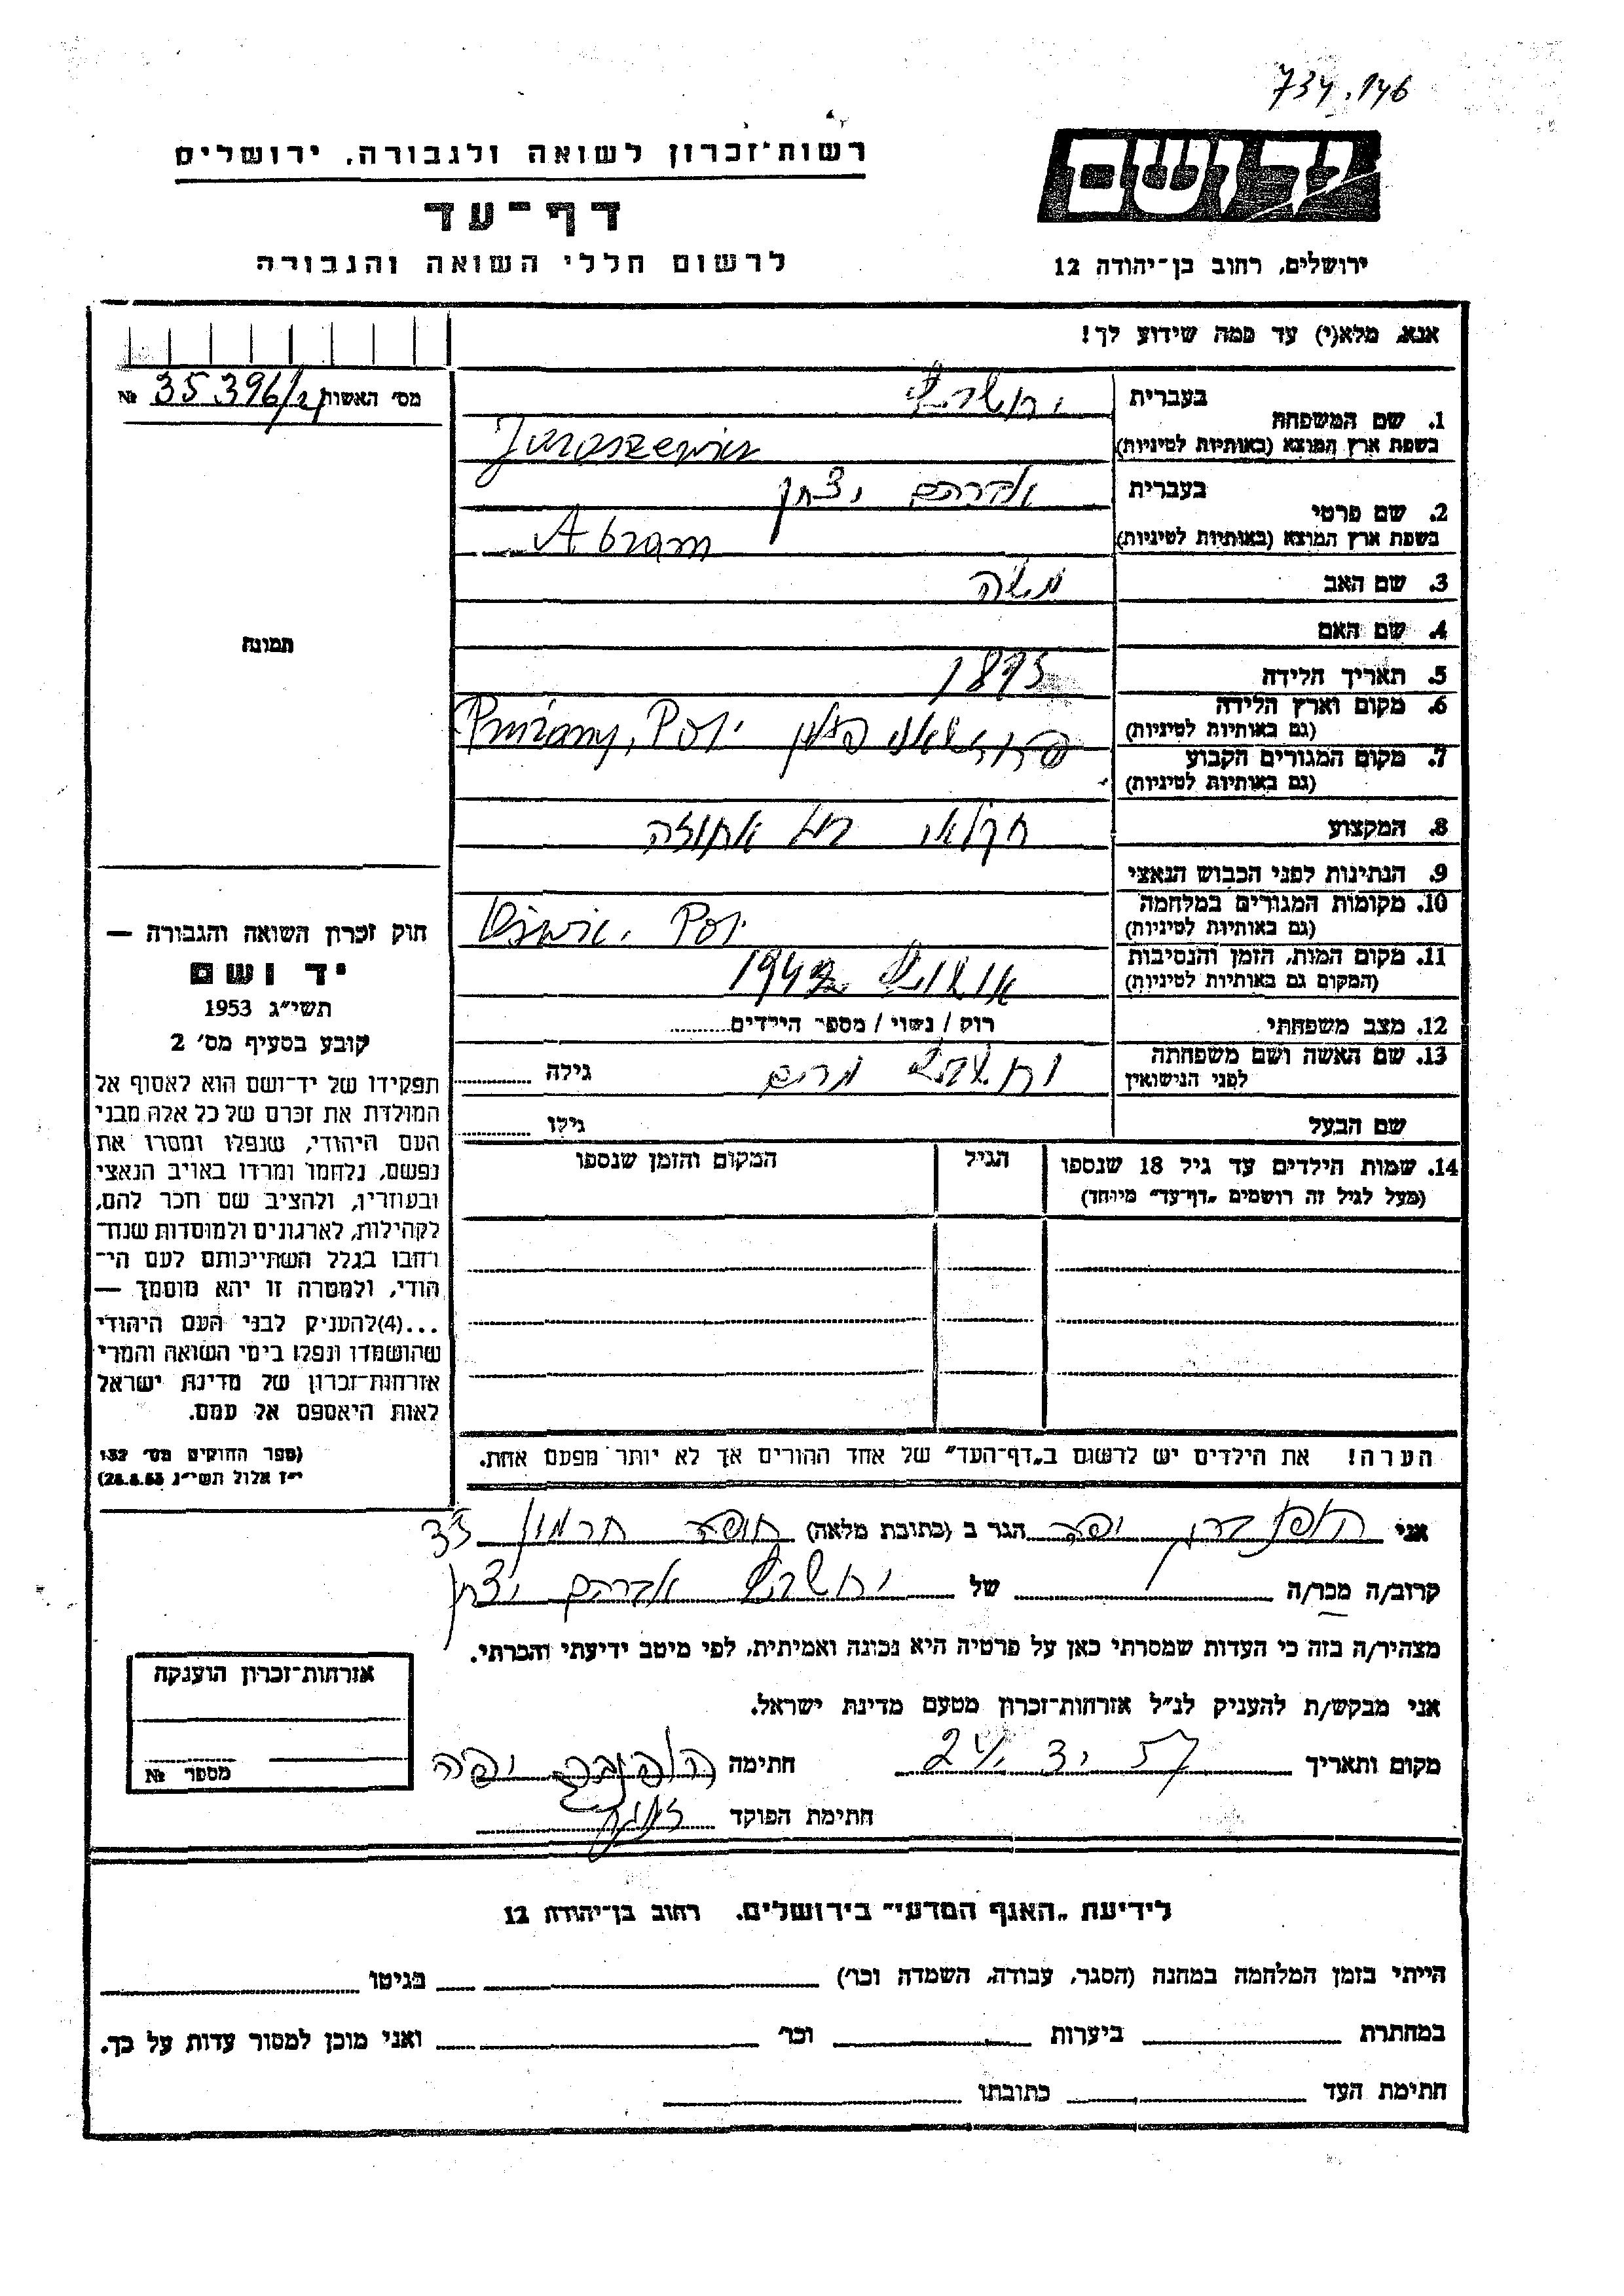 734.146
רשות־זכרון לשואה ולגבורה, ירושלים
דף־עד
לרשום חללי השואה והגבורה
יד ושם
ירושלים, רחוב בן־יהודה 12
אנא, מלא(י) עד כמה שידוע לך!
מס׳ האשות № 35396/
תמונה
1. שם המשפחה
בעברית
בשפת ארץ המוצא (באותיות לטיניות)
2. שם פרטי
בעברית אברהם יצחק
בשפת ארץ המוצא (באותיות לטיניות) Abram
3. שם האב משה
4. שם האם
5. תאריך הלידה 1895
6. מקום וארץ הלידה
(גם באותיות לטיניות)
Prużany, Pol
7. מקום המגורים הקבוע
(גם באותיות לטיניות)
8. המקצוע חקלאי בעל אחוזה
9. הנתינות לפני הכבוש הנאצי
10. מקומות המגורים במלחמה
(גם באותיות לטיניות)
Pol
11. מקום המות, הזמן והנסיבות
(המקום גם באותיות לטיניות)
12. מצב משפחתי רוק / נשוי / מספר הילדים
13. שם האשה ושם משפחתה
לפני הנישואין
מרים
גילה
שם הבעל גילו
14. שמות הילדים עד גיל 18 שנספו הגיל המקום והזמן שנספו
(מעל לגיל זה רושמים „דף־עד״ מיוחד)
הערה! את הילדים יש לרשום ב„דף־העד״ של אחד ההורים אך לא יותר מפעם אחת.
חוק זכרון השואה והגבורה —
יד ושם
תשי״ג 1953
קובע בסעיף מס׳ 2
תפקידו של יד־ושם הוא לאסוף אל
המולדת את זכרם של כל אלה מבני
העם היהודי, שנפלו ומסרו את
נפשם, נלחמו ומרדו באויב הנאצי
ובעוזריו, ולהציב שם וזכר להם,
לקהילות, לארגונים ולמוסדות שנח־
רבו בגלל השתייכותם לעם הי־
הודי, ולמטרה זו יהא מוסמך —
...(4) להעניק לבני העם היהודי
שהושמדו ונפלו בימי השואה והמרי
אזרחות־זכרון של מדינת ישראל
לאות היאספם אל עמם.
(ספר החוקים מס׳ 132
י״ז אלול תשי״ג 28.8.53)
אני יפה הגר ב (כתובת מלאה) חרמון
קרוב/ה מכר/ה של אברהם יצחק
מצהיר/ה בזה כי העדות שמסרתי כאן על פרטיה היא נכונה ואמיתית, לפי מיטב ידיעתי והכרתי.
אני מבקש/ת להעניק לנ״ל אזרחות־זכרון מטעם מדינת ישראל.
מקום ותאריך חתימה יפה
חתימת הפוקד
אזרחות־זכרון הוענקה
מספר №
לידיעת „האגף המדעי״ בירושלים, רחוב בן־יהודה 12
הייתי בזמן המלחמה במחנה (הסגר, עבודה, השמדה וכו׳) בגיטו
במחתרת ביערות וכו׳ ואני מוכן למסור עדות על כך.
חתימת העד כתובתו